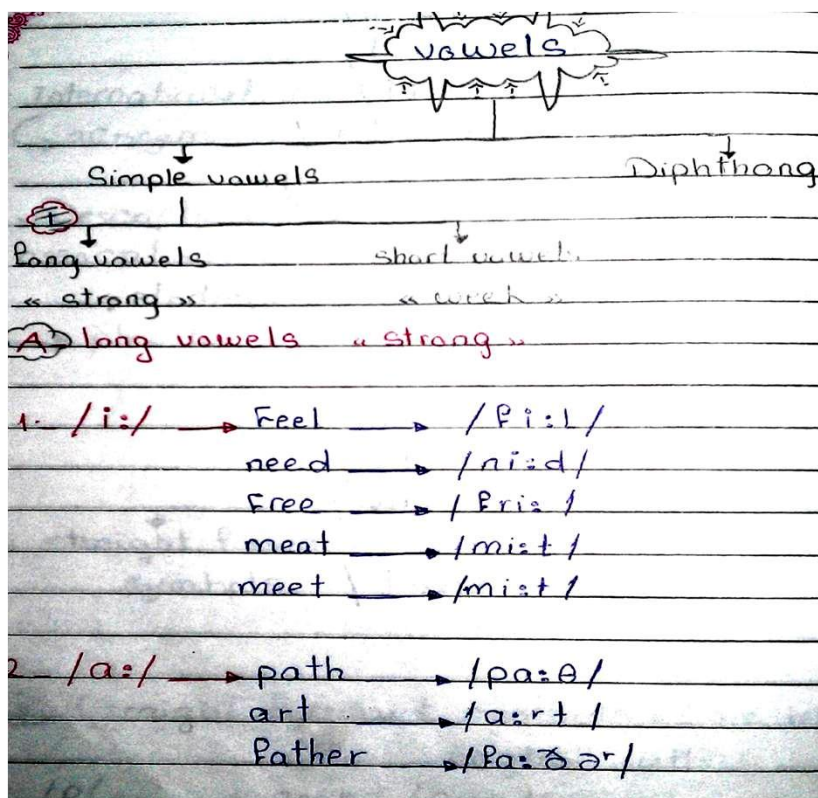 vowels
Simple vowels Diphthong
I
long vowels short vowel
« strong » « week »
A long vowels « strong »
1- /i:/ → Feel → /fi:l/
need → /ni:d/
Free → /fri:/
meat → /mi:t/
meet → /mi:t/
2 - /a:/ → path → /pa:θ/
art → /a:rt/
father → /fa:ðəʳ/